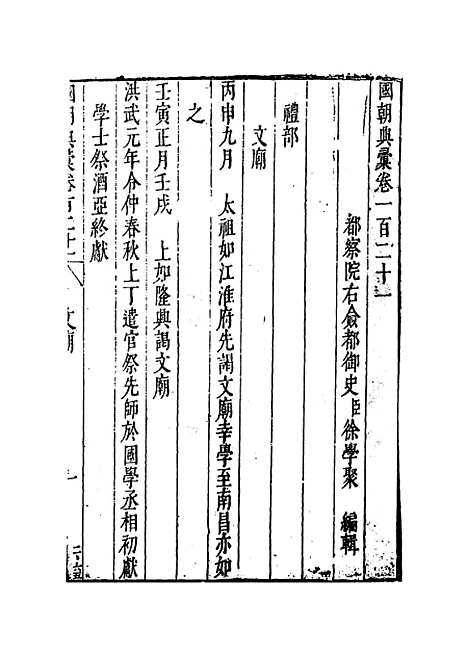 國朝典彙卷一百二十一
都察院右僉都御史臣徐學聚 編輯
禮部
文廟
丙申九月 太祖如江淮府先謁文廟幸學至南昌亦如
之
壬寅正月壬戌 上如隆興謁文廟
洪武元年令仲春秋上丁遣官祭先師於國學丞相初獻
學士祭酒亞終獻
國朝典彙卷百二十一 文廟 一